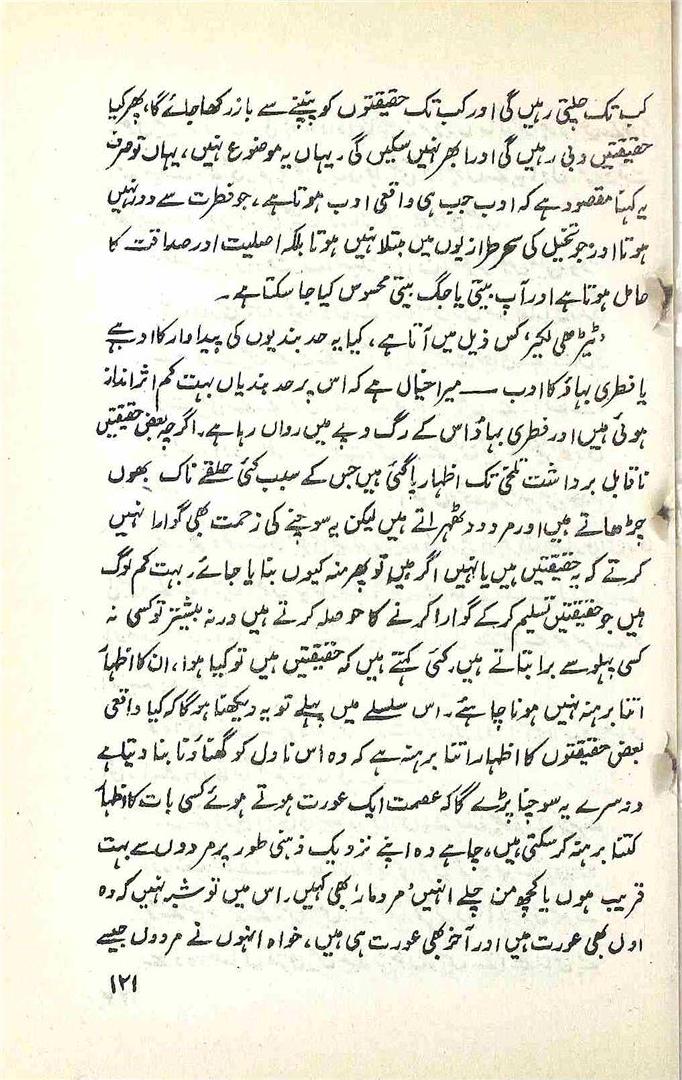 کب تک چلتی رہیں گی اور کب تک حقیقتوں کو پنپنے سے باز رکھا جائے گا، پھر کیا
حقیقتیں دبی رہیں گی اور ابھر نہیں سکیں گی۔ یہاں یہ موضوع نہیں، یہاں تو صرف
یہ کہنا مقصود ہے کہ ادب جب ہی واقعی ادب ہوتا ہے، جو فطرت سے دور نہیں
ہوتا اور جو تخیل کی سحر طرازیوں میں مبتلا نہیں ہوتا بلکہ اصلیت اور صداقت کا
حامل ہوتا ہے اور آپ بیتی یا جگ بیتی محسوس کیا جا سکتا ہے۔
'ٹیڑھی لکیر' کس ذیل میں آتا ہے، کیا یہ حد بندیوں کی پیداوار کا ادب ہے
یا فطری بہاؤ کا ادب — میرا خیال ہے کہ اس پر حد بندیاں بہت کم اثر انداز
ہوئی ہیں اور فطری بہاؤ اس کے رگ و پے میں رواں رہا ہے۔ اگرچہ بعض حقیقتیں
ناقابل برداشت تلخی تک اظہار پا گئی ہیں جس کے سبب کئی حلقے ناک بھوں
چڑھاتے ہیں اور مردود ٹھہراتے ہیں لیکن یہ سوچنے کی زحمت بھی گوارا نہیں
کرتے کہ یہ حقیقتیں ہیں یا نہیں اگر ہیں تو پھر منہ کیوں بنایا جائے۔ بہت کم لوگ
ہیں جو حقیقتیں تسلیم کر کے گوارا کرنے کا حوصلہ کرتے ہیں ورنہ بیشتر تو کسی نہ
کسی پہلو سے برا بتاتے ہیں۔ کئی کہتے ہیں کہ حقیقتیں ہیں تو کیا ہوا، ان کا اظہار
اتنا برہنہ نہیں ہونا چاہئے۔ اس سلسلے میں پہلے تو یہ دیکھنا ہو گا کہ کیا واقعی
بعض حقیقتوں کا اظہار اتنا برہنہ ہے کہ وہ اس ناول کو گھناؤنا بنا دیتا ہے
دوسرے یہ سوچنا پڑے گا کہ عصمت ایک عورت ہوتے ہوئے کسی بات کا اظہار
کتنا برہنہ کر سکتی ہیں، چاہے وہ اپنے نزدیک ذہنی طور پر مردوں سے بہت
قریب ہوں یا کچھ من چلے انہیں 'مرد مار' بھی کہیں۔ اس میں تو شبہ نہیں کہ وہ
اول بھی عورت ہیں اور آخر بھی عورت ہی ہیں، خواہ انہوں نے مردوں جیسے
۱۲۱